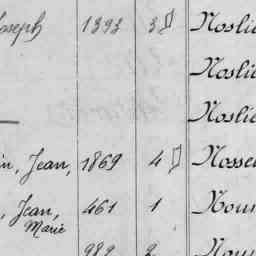 Joseph 1393 3 Noslie
Noslie
Noslie
in, Jean, 1869 4 Nosse
, Jean, Marie 461 1 Nou
989 2 Nou